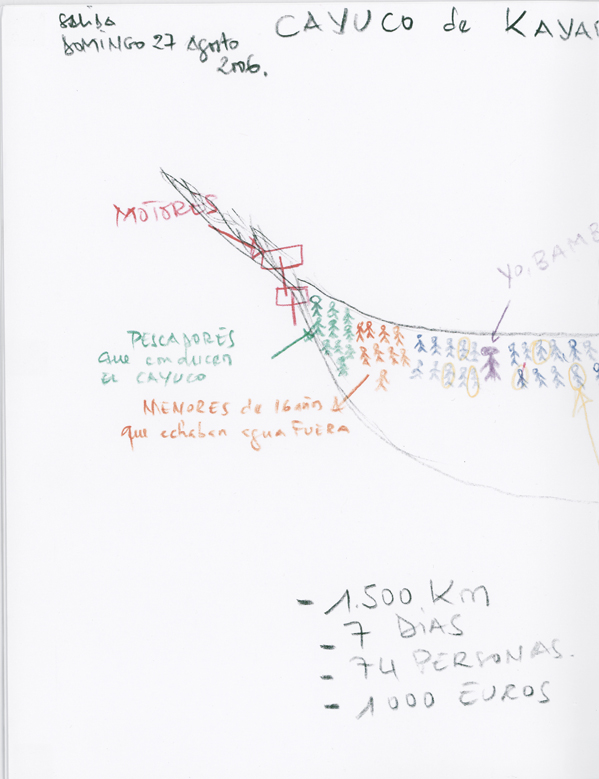 Salida
DOMINGO 27 Agosto
2006.
CAYUCO de KAYA
MOTORES
YO, BAMB
PESCADORES
que conducen
el CAYUCO
MENORES de 16 años
que echaban agua FUERA
- 1.500 Km
- 7 DIAS
- 74 PERSONAS.
- 1000 EUROS